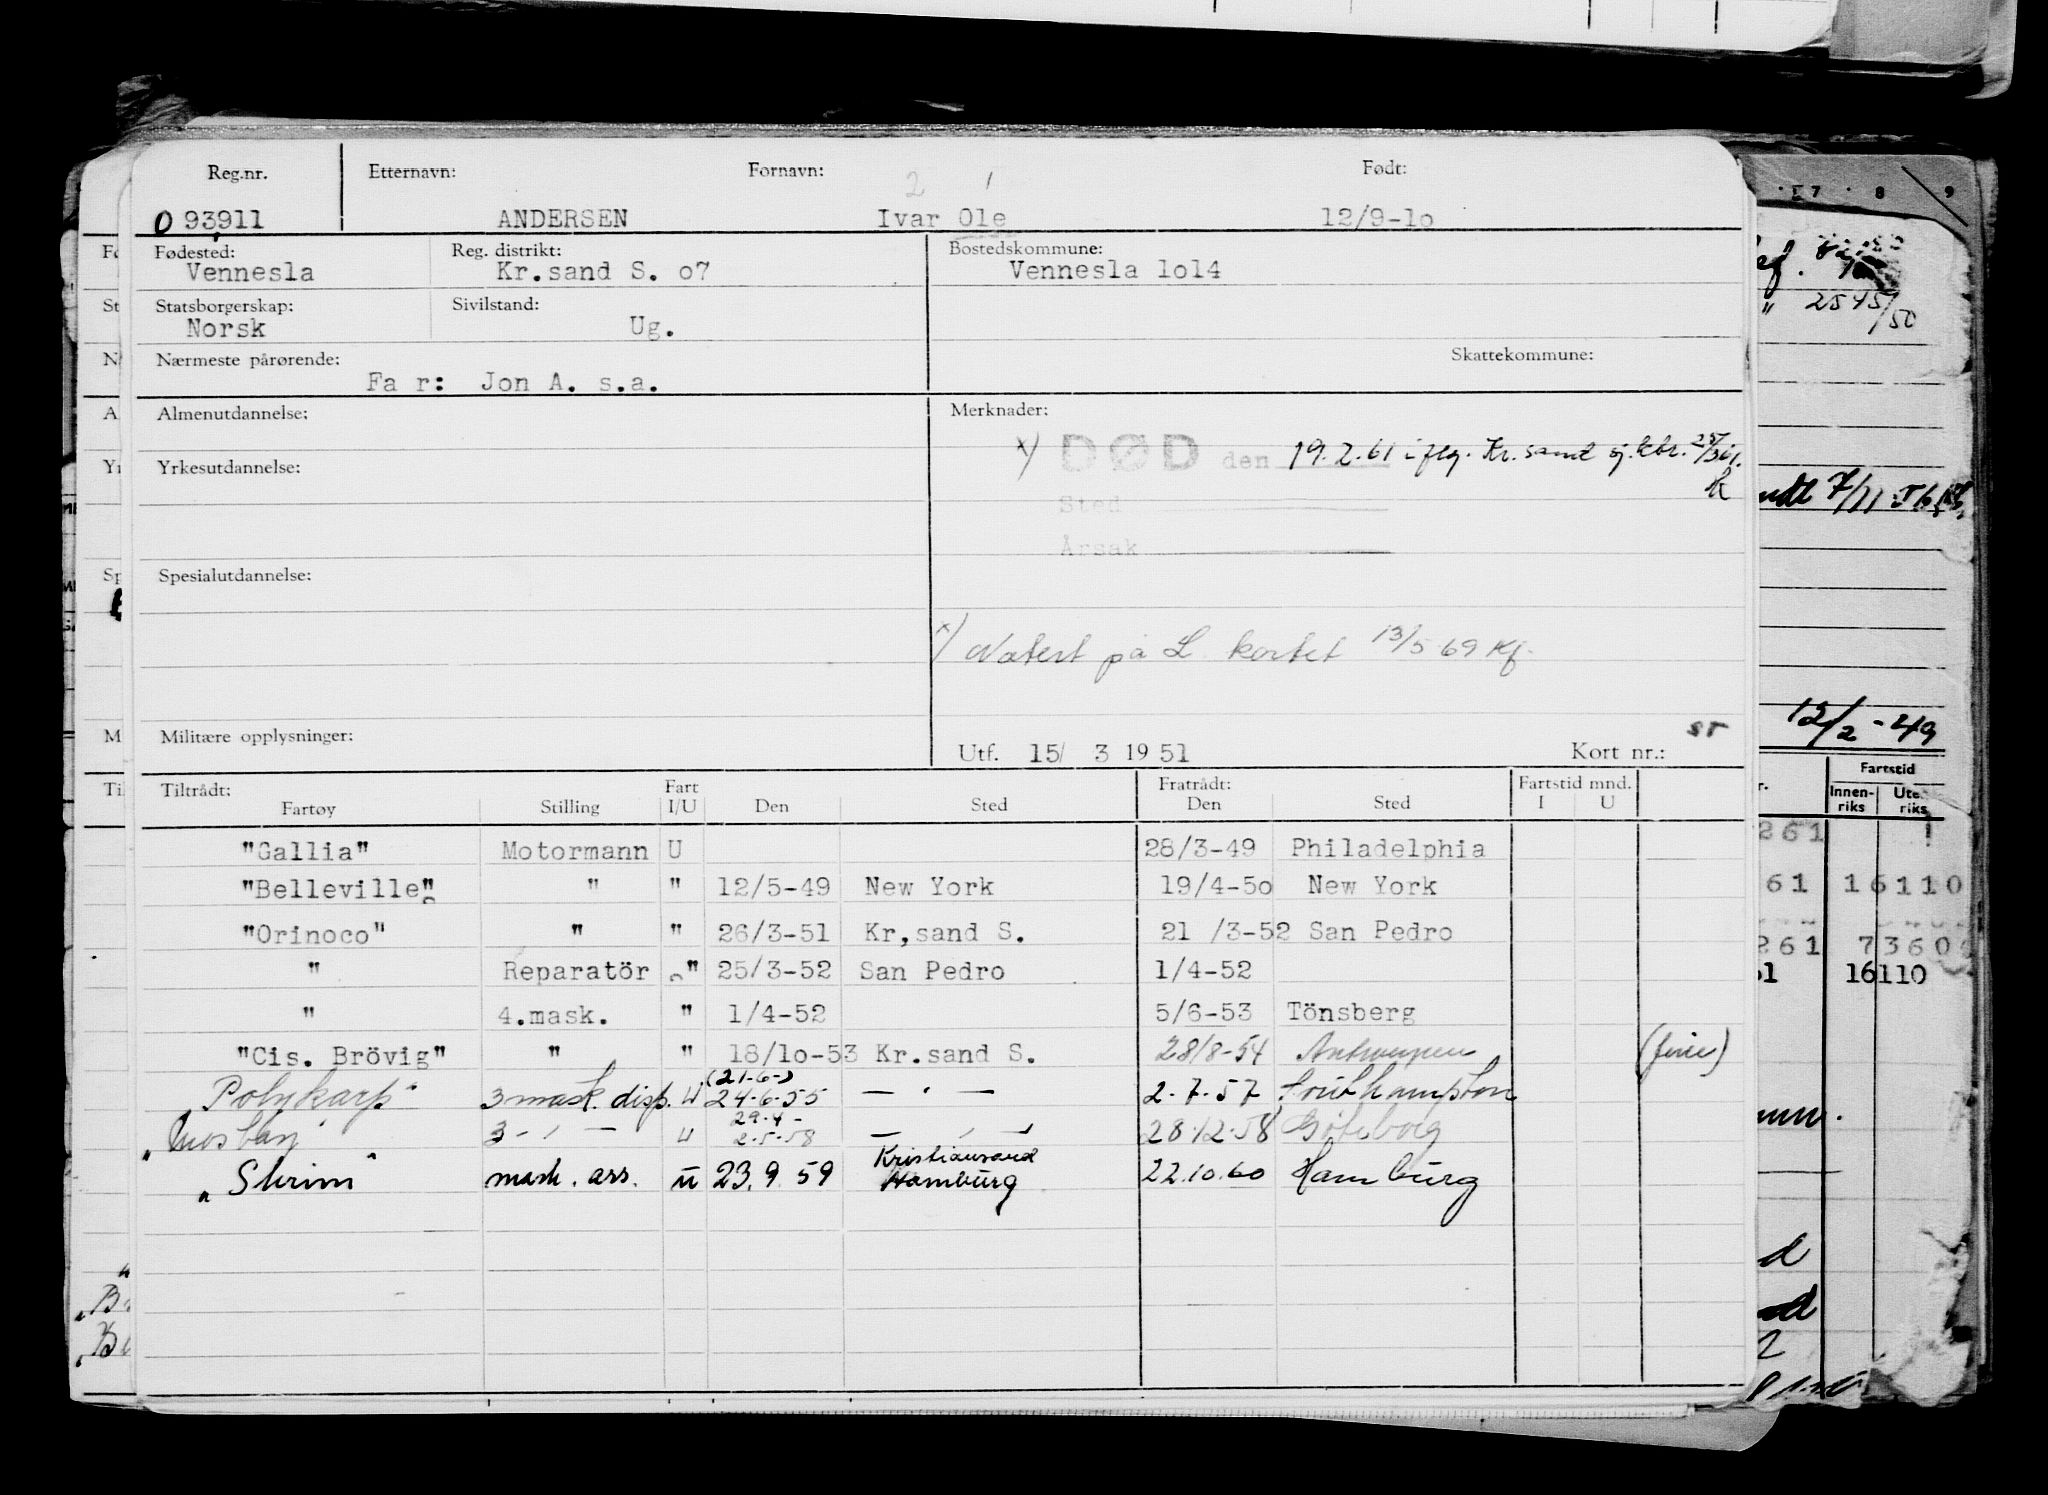 Reg.nr. Etternavn: Fornavn: Født:
2 1
0 93911 ANDERSEN Ivar Ole 12/9-1o
Fødested: Reg. distrikt: Bostedskommune:
Vennesla Kr.sand S. o7 Vennesla 1o14
Statsborgerskap: Sivilstand:
Norsk Ug.
Nærmeste pårørende: Skattekommune:
Fa r: Jon A. s.a.
Almenutdannelse: Merknader:
x) DØD den 19.2.61 iflg. Kr.sand sj.ktr. 25/3 61.
Yrkesutdannelse:
Sted
Årsak
Spesialutdannelse:
x) Notert på L kortet 13/5 69 Kf.
Militære opplysninger: Utf. 15/ 3 19 51 Kort nr.:
Tiltrådt: Fart Fratrådt: Fartstid mnd.
Fartøy Stilling I/U Den Sted Den Sted I U
"Gallia" Motormann U 28/3-49 Philadelphia
"Belleville" " " 12/5-49 New York 19/4-5o New York
"Orinoco" " " 26/3-51 Kr,sand S. 21 /3-52 San Pedro
" Reparatör " 25/3-52 San Pedro 1/4-52
" 4.mask. " 1/4-52 5/6-53 Tönsberg
"Cis. Brövig" " " 18/1o-53 Kr.sand S. 28/8-54 Antwerpen (ferie)
(21-6-)
"Polykarp" 3 mask. disp. U 24-6-55 — " — 2.7.57 Southampton
29.4-
"Mosbay" 3 - " — U 2.5.58 — " — 28.12.58 Göteborg
Kristiansand
"Skrim" mask. ass. U 23.9.59 Hamburg 22.10.60 Hamburg
12/2-49
Fartstid
Innen-
riks
Uten-
riks
261
61 16110
261 7360
16110